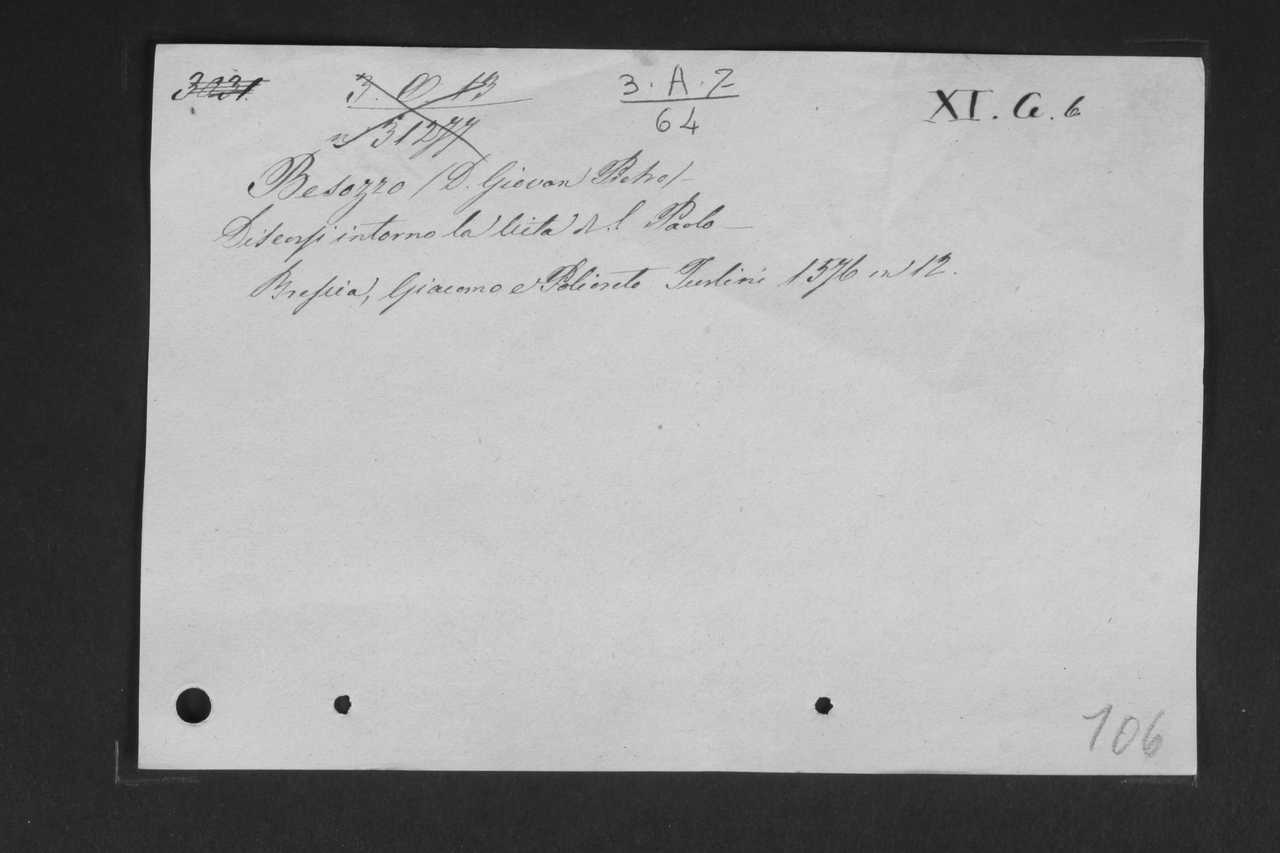 3031.
3. O. 13
n 31277
3. A. 7
64
XI. G. 6
Besozzo (D. Giovan Pietro)
Discorsi intorno la Vita di S. Paolo
Brescia, Giacomo e Policreto Turlini 1576 in 12.
106